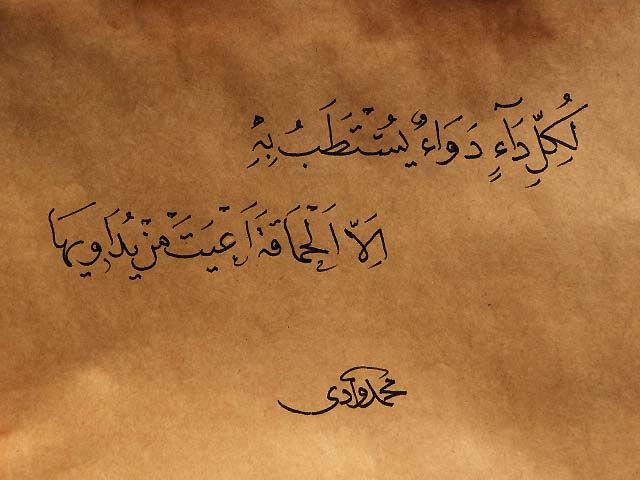 لِكُلِّ دَآءٍ دَوَاءٌ يُسْتَطَبُ بِهِ
اِلَّا اَلْحَمَاقَةَ اَعْيَتْ مَنْ يُدَاوِيهَا
محمد وادی